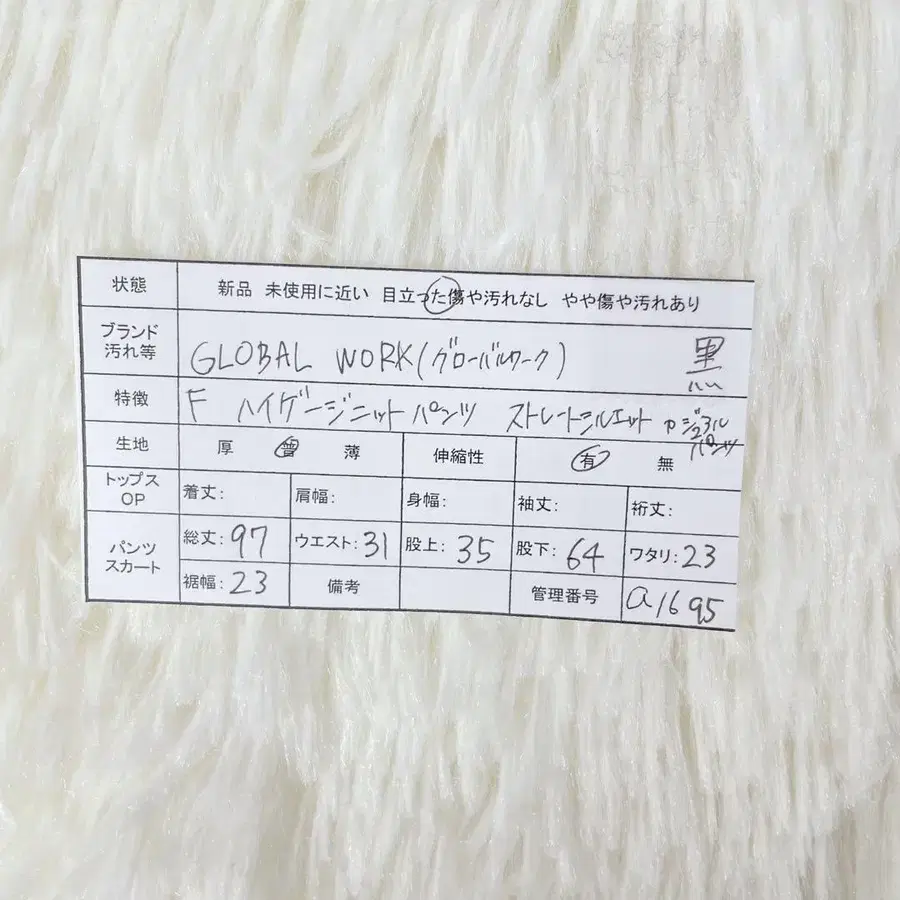 状態 新品 未使用に近い 目立った傷や汚れなし やや傷や汚れあり
ブランド 汚れ等 GLOBAL WORK(グローバルワーク) 黒
特徴 F ハイゲージニットパンツ ストレートシルエット カジュアルパンツ
生地 厚 普 薄 伸縮性 有 無
トップス OP 着丈: 肩幅: 身幅: 袖丈: 裄丈:
パンツ スカート 総丈:97 ウエスト:31 股上:35 股下:64 ワタリ:23
裾幅:23 備考 管理番号 a1695